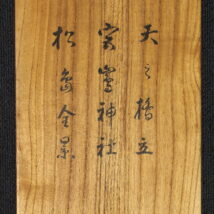 天之橋立
宮島神社
松島全景